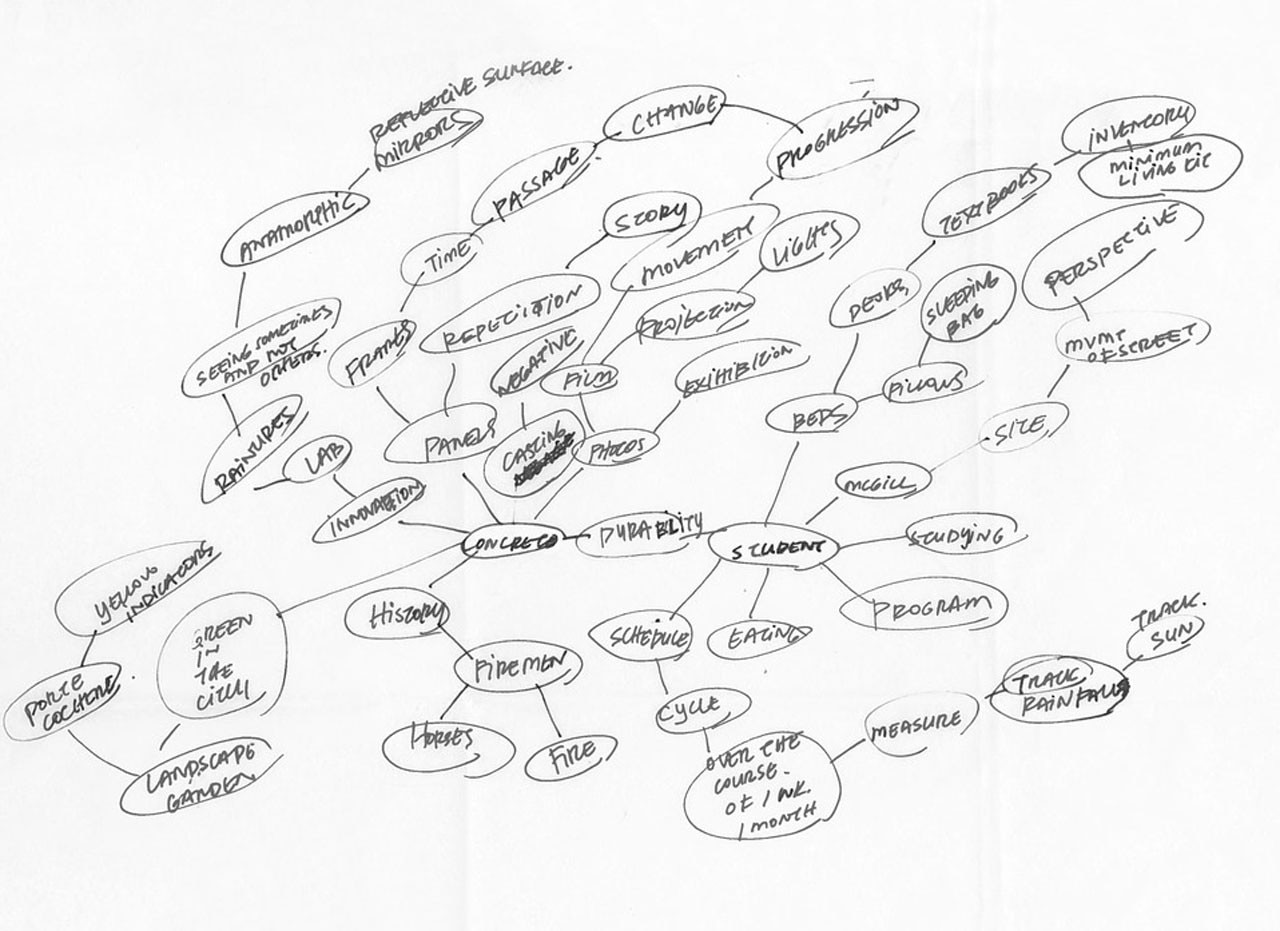 REFLECTIVE SURFACE.
MIRRORS
CHANGE
PROGRESSION
INVENTORY
MINIMUM
LIVING KIT
PASSAGE
TEXTBOOKS
ANAMORPHIC
STORY
MOVEMENT
LIGHTS
PERSPECTIVE
TIME
DESKS
SLEEPING
BAG
REPETITION
PROJECTION
SEEING SOMETIMES
AND NOT
OTHERS.
FRAMES
NEGATIVE
FILM
EXIHIBITION
MVMT
OF STREET
PILLOWS
BEDS
LAB
PANELS
CASTING
PHOTOS
SITE
INNOVATION
MCGILL
CONCRETE
DURABILITY
STUDENT
STUDYING
YELLOW
INDICATORS
HISTORY
PROGRAM
GREEN
IN
THE
CITY
SCHEDULE
EATING
TRACK.
SUN
FIREMEN
PORTE
COCHERE
TRACK
RAINFALL
CYCLE
MEASURE
HORSES
FIRE
LANDSCAPE
GARDEN
OVER THE
COURSE.
OF 1 WK.
1 MONTH